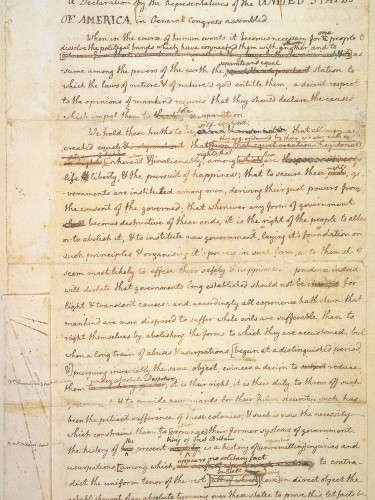 A Declaration by the Representatives of the UNITED STATES
OF AMERICA, in General Congress assembled.
When in the course of human events it becomes necessary for one people to
dissolve the political bands which have connected them with another, and to
as-
separate and equal
-sume among the powers of the earth the station to
which the laws of nature & of nature's god entitle them, a decent respect
to the opinions of mankind requires that they should declare the causes
which impel them to the separation.
self evident
We hold these truths to be that all men are
created equal that
inherent & inalienable, among which are
life, & liberty, & the pursuit of happiness; that to secure these rights, go-
-vernments are instituted among men, deriving their just powers from
the consent of the governed; that whenever any form of government
becomes destructive of these ends, it is the right of the people to alter
or to abolish it, & to institute new government, laying it's foundation on
such principles & organising it's powers in such form, as to them shall
seem most likely to effect their safety & happiness. prudence indeed
will dictate that governments long established should not be changed for
light & transient causes: and accordingly all experience hath shewn that
mankind are more disposed to suffer while evils are sufferable, than to
right themselves by abolishing the forms to which they are accustomed. but
when a long train of abuses & usurpations [begun at a distinguished period
& pursuing invariably the same object, evinces a design to reduce
under absolute despotism
them it is their right, it is their duty, to throw off such
& to provide new guards for their future security. such has
been the patient sufferance of these colonies; & such is now the necessity
which constrains them to [expunge] their former systems of government.
King of Great Britain
the history of the present is a history of injuries and
usurpations, [among which
appears no solitary fact
to contra-
-dict the uniform tenor of the rest [all of which] have in direct object the
establishment of an absolute tyranny over these states. to prove this let facts be